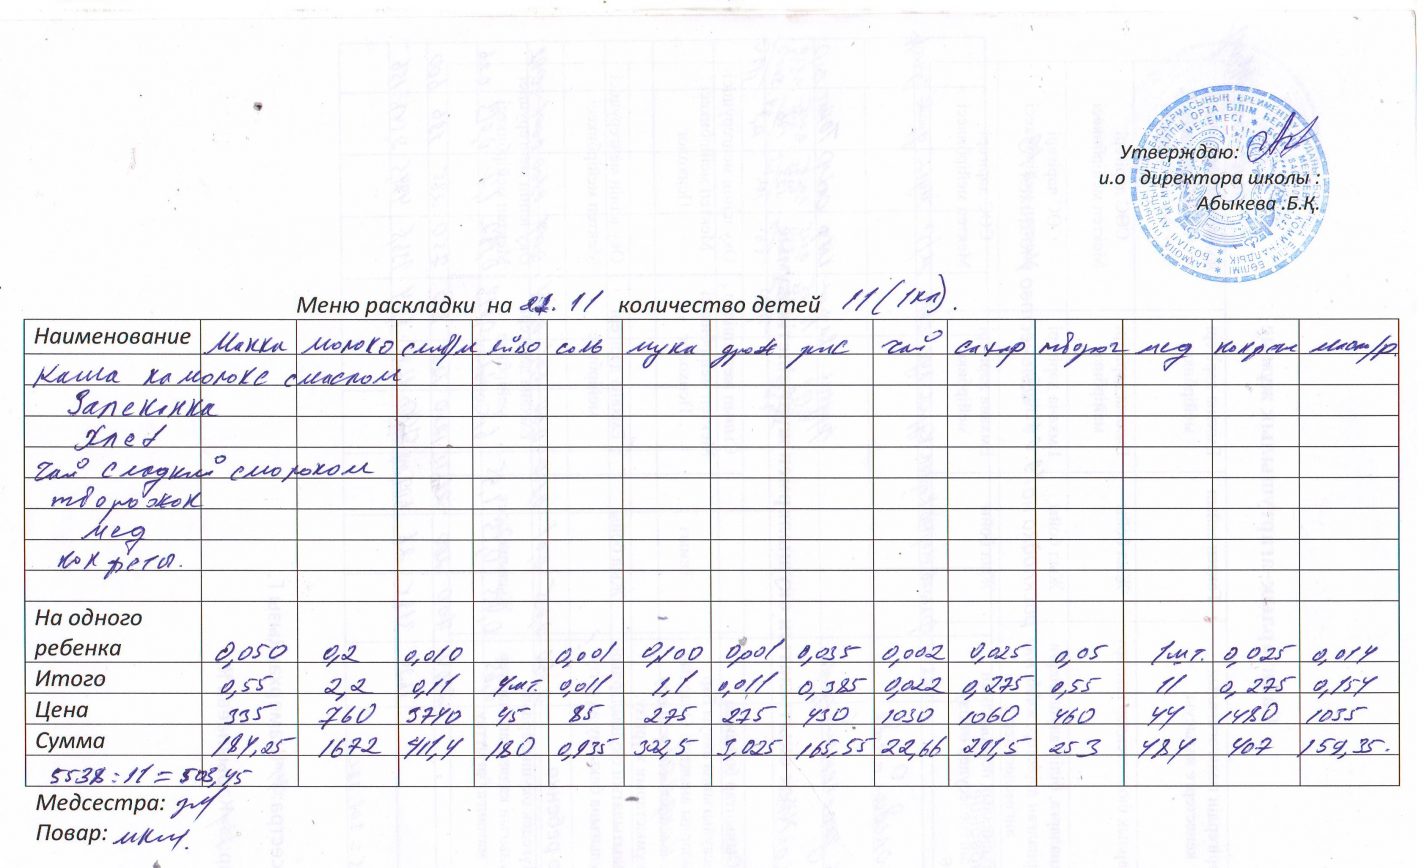 Утверждаю:
и.о директора школы :
Абыкева .Б.Қ.
Меню раскладки на 21. 11 количество детей 11 (1кл).
Наименование Манка молоко слив/м яйцо соль мука дрож рис чай сахар творог мед конфет масл/р.
Каша на молоке с маслом
Запеканка
Хлеб
Чай сладкий с молоком
творожок
мед
конфета.
На одного
ребенка 0,050 0,2 0,010 0,001 0,100 0,001 0,035 0,002 0,025 0,05 1шт. 0,025 0,014
Итого 0,55 2,2 0,11 4шт. 0,011 1,1 0,011 0,385 0,022 0,275 0,55 11 0,275 0,154
Цена 335 760 3740 45 85 275 275 430 1030 1060 460 44 1480 1035
Сумма 184,25 1672 411,4 180 0,935 302,5 3,025 165,55 22,66 291,5 253 484 407 159,35.
5538 : 11 = 503,45
Медсестра:
Повар: